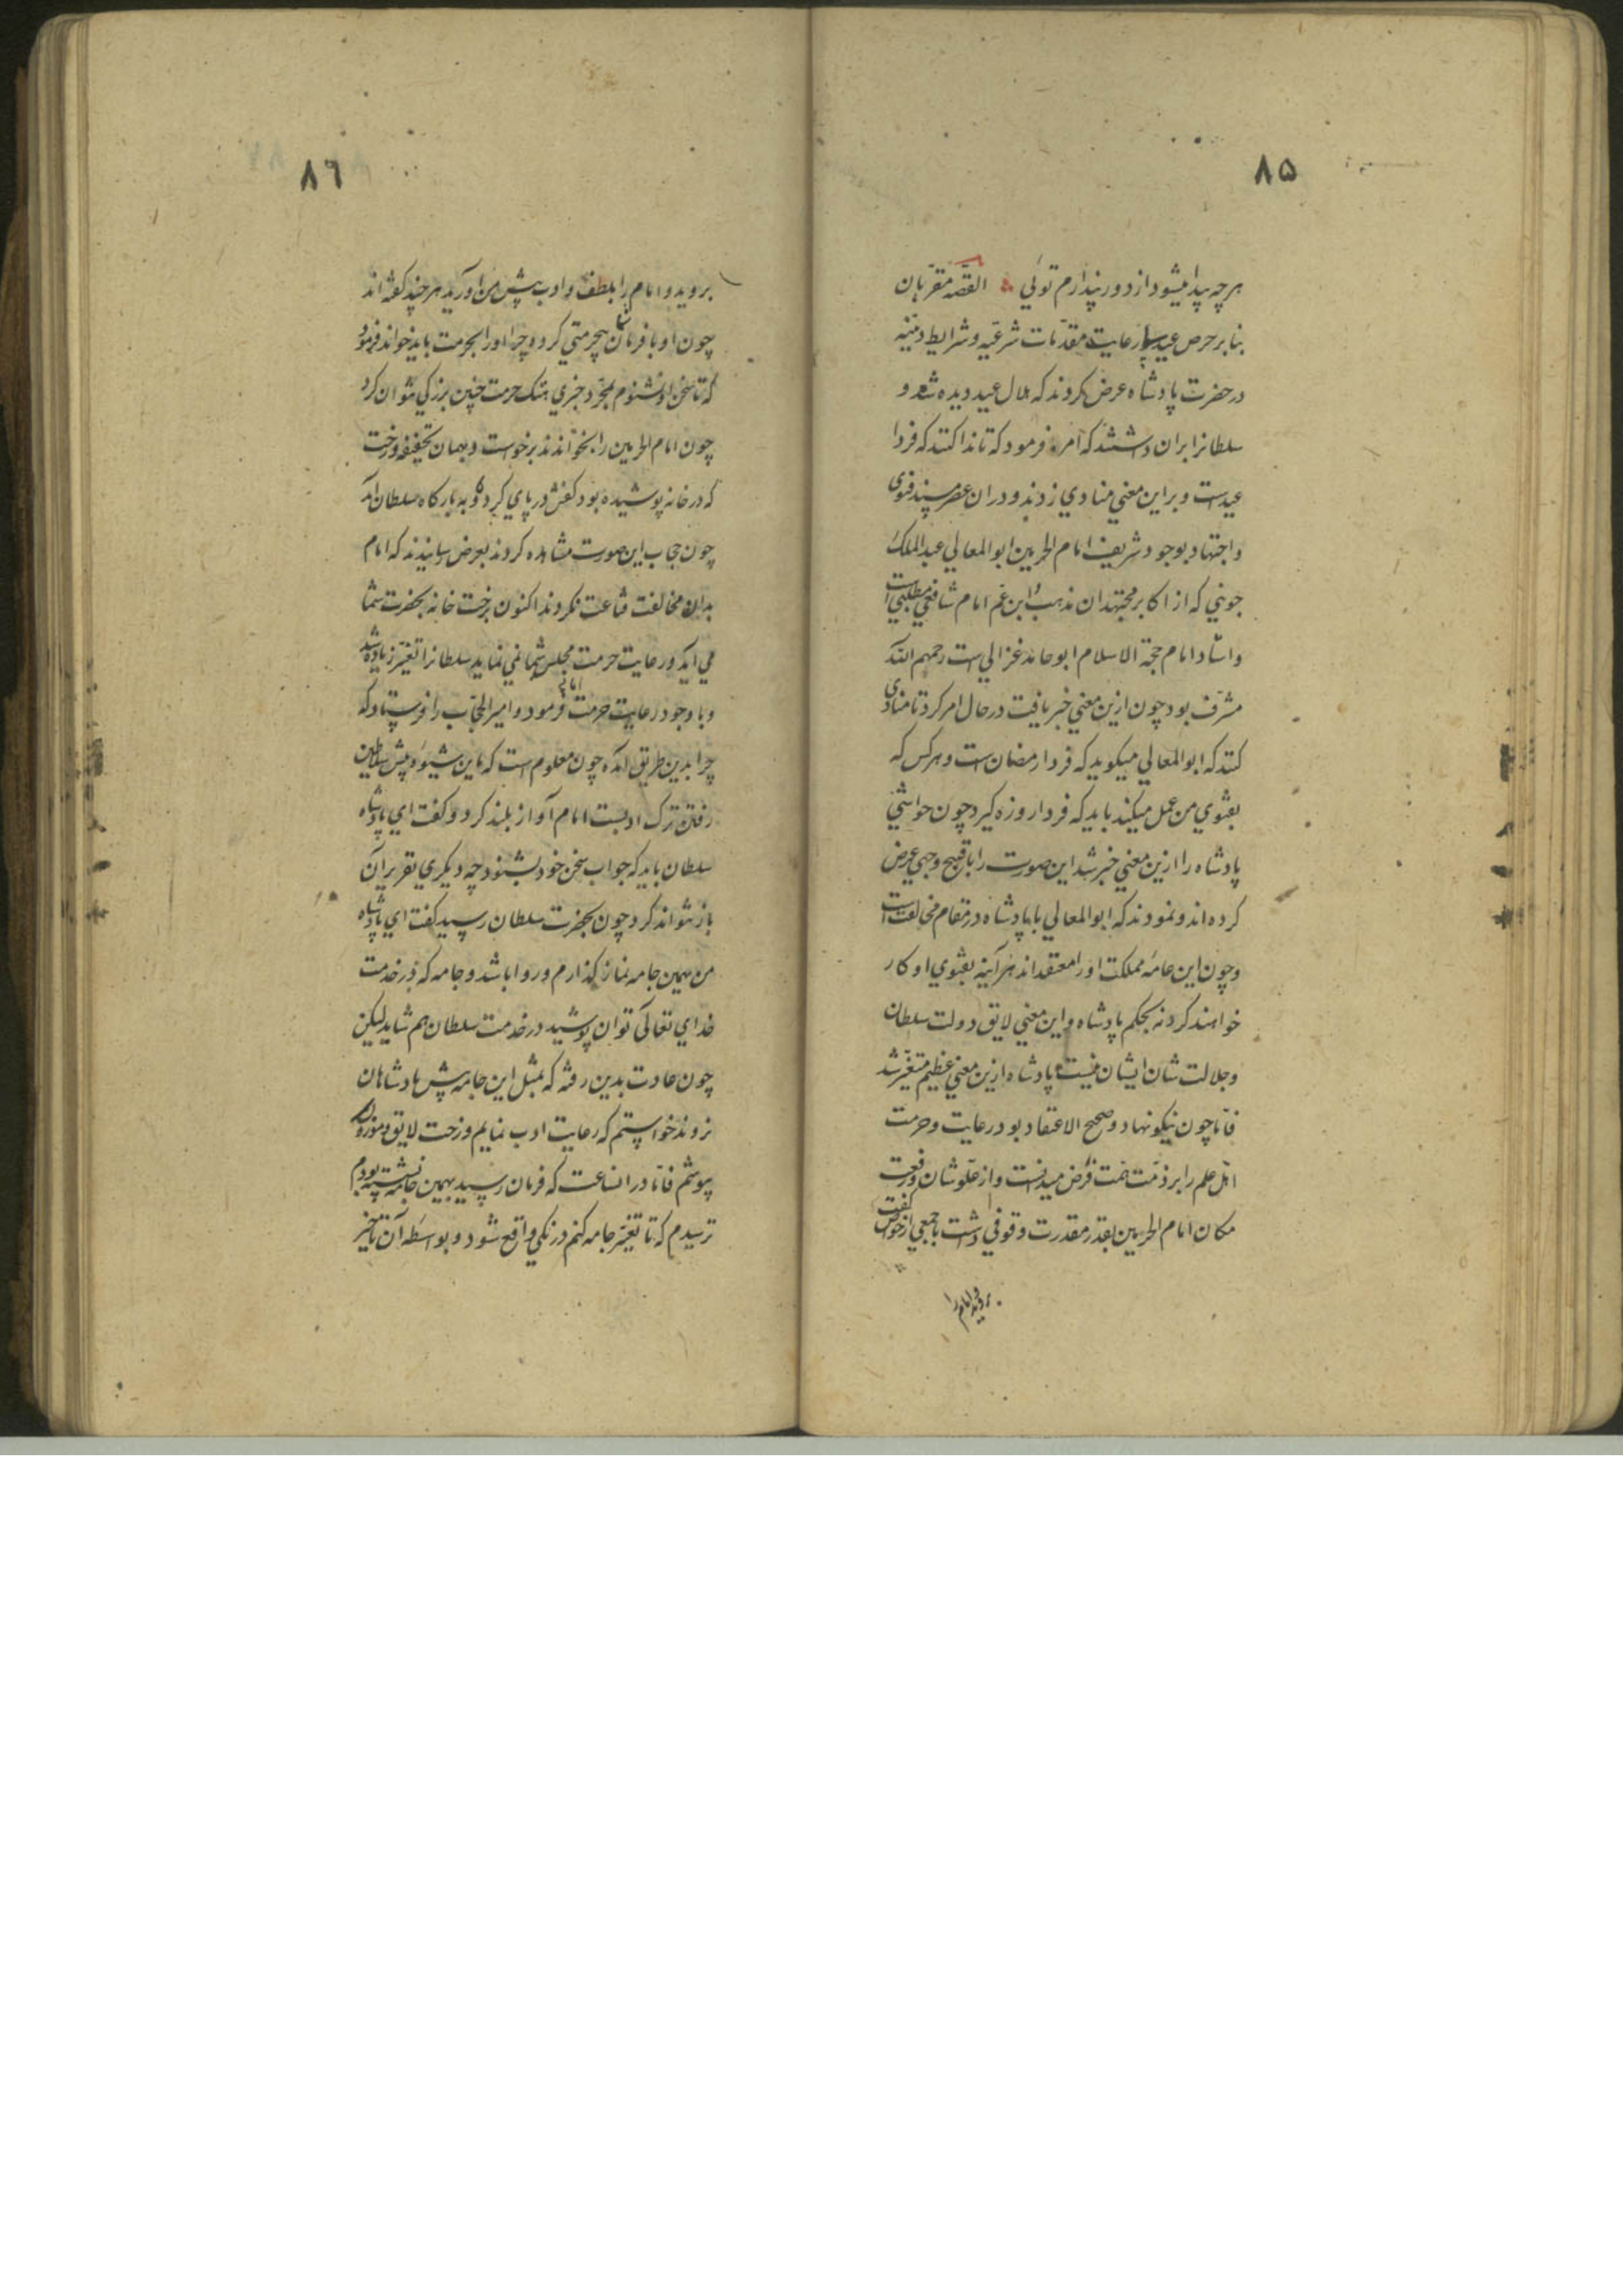 ۸۵
هرچه پیدا میشود از دور پندارم توئی القصه مقربان
بنا بر حرص عید بی رعایت مقدمات شرعیه و شرایط دینیه
در حضرت پادشاه عرض کردند که هلال عید دیده شد و
سلطانرا بران داشتند که امر فرمود که تا ندا کنند که فردا
عیدست و براین معنی منادی زدند و دران عصر مسند فتوی
و اجتهاد بوجود شریف امام الحرمین ابوالمعالی عبدالملک
جوینی که از اکابر مجتهدان مذهب ابن عم امام شافعی مطلبی است
و استاد امام حجة الاسلام ابوحامد غزالی است رحمهم الله
مشرف بود چون ازین معنی خبر یافت در حال امر کرد تا منادی
کنند که ابوالمعالی میکوید که فردا رمضان است و هرکس که
بفتوی من عمل میکند باید که فردا روزه کیرد چون حواشی
پادشاه را ازین معنی خبر شد این صورت را باقبح وجهی عرض
کرده اند و نمودند که ابوالمعالی با پادشاه در مقام مخالفت است
و چون این عامه مملکت اورا معتقداند هر آینه بفتوی او کار
خواهند کرد نه بحکم پادشاه و این معنی لایق دولت سلطان
و جلالت شان ایشان نیست پادشاه ازین معنی عظیم متغیر شد
فاما چون نیکونهاد و صحیح الاعتقاد بود رعایت و حرمت
اهل علم را بر ذمت همت فرض میدانست و از علو شان و رفعت
مکان امام الحرمین بقدر مقدرت وقوفی داشت با جمعی از خواص گفت
بروید و امام را
۸٦
بروید و امام را بلطف و ادب پیش من آورید هر چند گفته اند
چون او با فرمان شما بیحرمتی کرد و چرا اورا بحرمت باید خواند فرمود
که تا سخن او نشنوم بمجرد خبری هتک حرمت چنین بزرکی نتوان کرد
چون امام الحرمین را بخواندند برخواست و بهمان تخفیفه و رخت
که در خانه پوشیده بود کفش در پای کرده و به بارکاه سلطان آمد
چون حجاب این صورت مشاهده کردند بعرض رسانیدند که امام
بدان مخالفت قناعت نکردند اکنون برخت خانه بحضرت شما
می آید و رعایت حرمت مجلس شما نمی نماید سلطانرا تغیر زیاده شد
و با وجود رعایت حرمت امام فرمود و امیر الحجاب را فرستاد که
چرا بدین طریق آمده چون معلوم است که باین شیوه پیش سلاطین
رفتن ترک ادبست امام آواز بلند کرد و کفت ای پادشاه
سلطان باید که جواب سخن خود بشنود چه دیکری تقریر آن
باز نتواند کرد چون بحضرت سلطان رسید کفت ای پادشاه
من بهمین جامه نماز کذارم و روا باشد و جامه که در خدمت
خدای تعالی توان پوشید در خدمت سلطان هم شاید لیکن
چون عادت بدین رفته که بمثل این جامه پیش پادشاهان
نروند خواستم که رعایت ادب نمایم و رخت لایق و موزون
پوشم فاما در انساعت که فرمان رسید بهمین جامه نشسته بودم
ترسیدم که تا تغیر جامه کنم درنکی واقع شود و بواسطه آن تاخیر